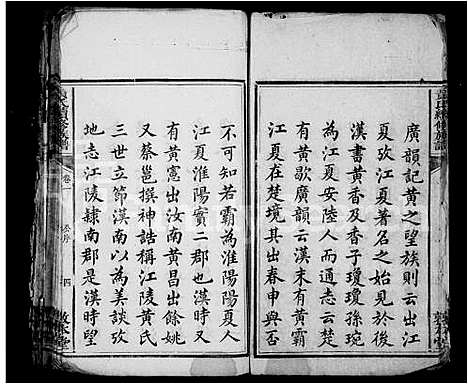 廣韻記黃之望族則云出江
夏攷江夏著名之始見於
漢書黃香及香子瓊瓊孫琬
為江夏安陸人而通志云楚
有黃歇廣韻云漢末有黃霸
江夏在楚境其出春申與否
不可知若霸為淮陽陽夏人
江夏淮陽實二郡也漢時又
有黃憲出汝南黃昌出餘姚
又蔡邕撰神誥稱江陵黃氏
三世立節漢南以為美談攷
地志江陵隸南郡是漢時望
卷一
四
敦本堂